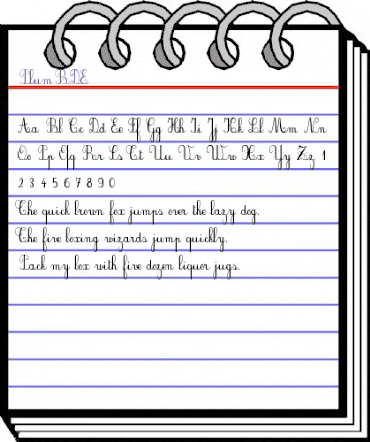 Plum BDE
Aa Bb Cc Dd Ee Ff Gg Hh Ii Jj Kk Ll Mm Nn
Oo Pp Qq Rr Ss Tt Uu Vv Ww Xx Yy Zz 1
2 3 4 5 6 7 8 9 0
The quick brown fox jumps over the lazy dog.
The five boxing wizards jump quickly.
Pack my box with five dozen liquor jugs.